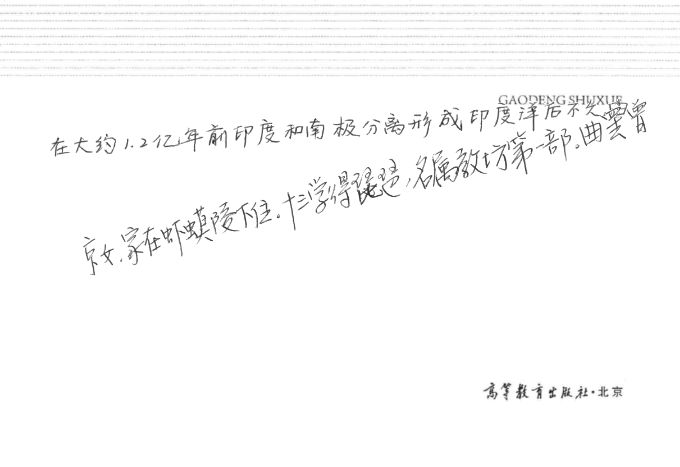 GAODENG SHUXUE
在大约1.2亿年前印度和南极分离形成印度洋后不久
京女,家在虾蟆陵下住。十三学得琵琶,名属教坊第一部。曲
高等教育出版社·北京